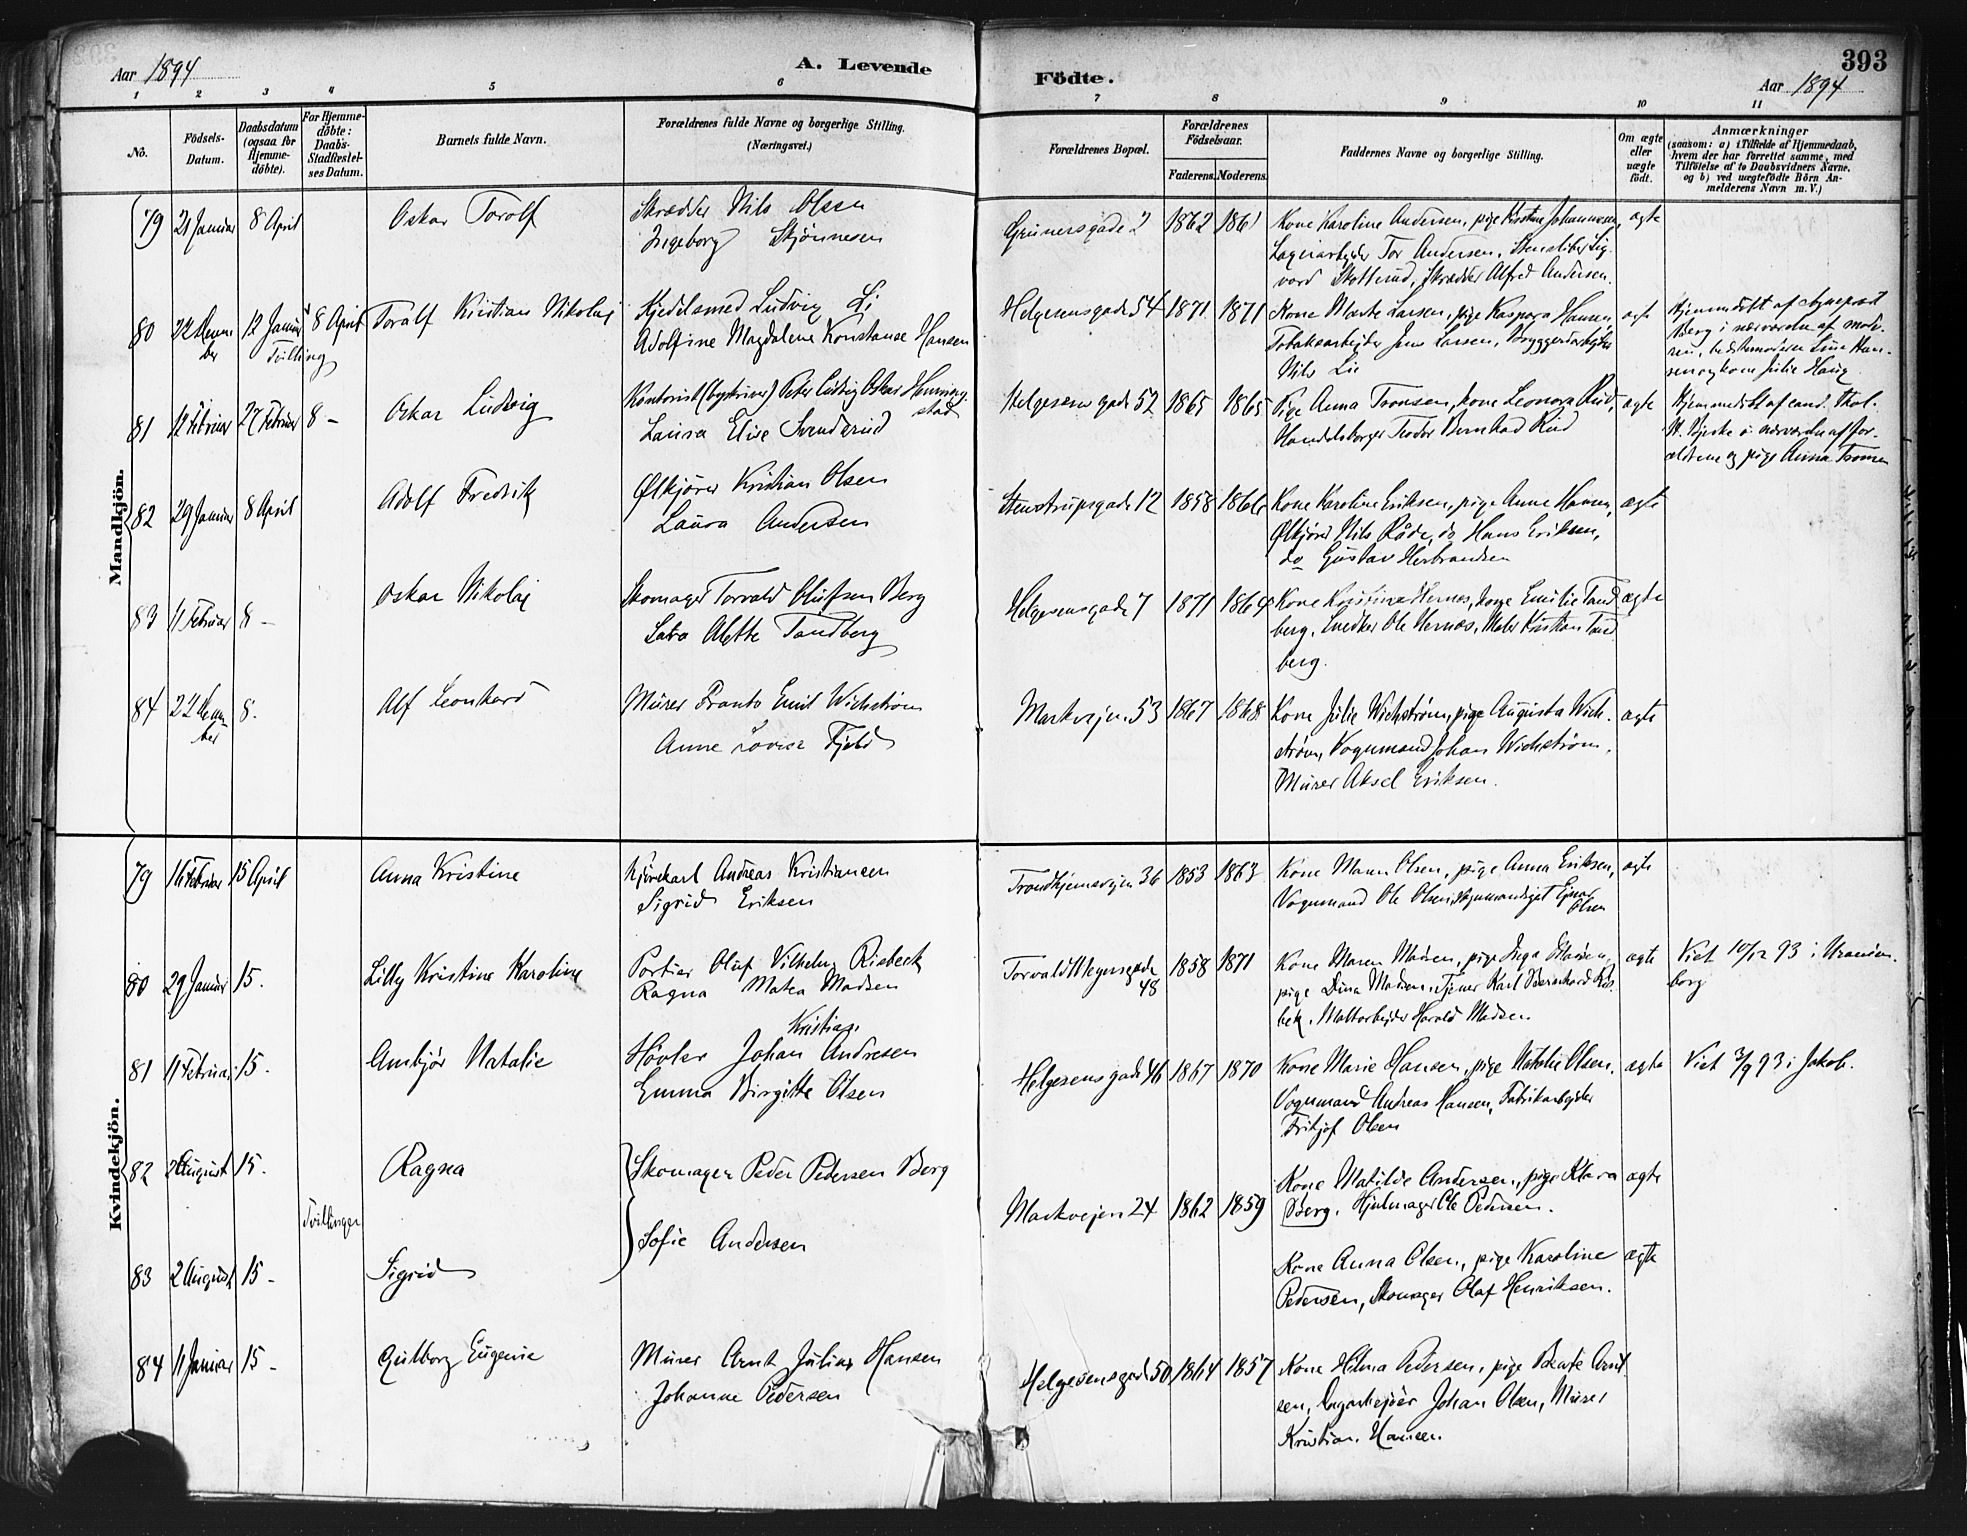 Aar 1894
A. Levende
Födte.
393
Aar 1894
1 2 3 4 5 6 7 8 9 10 11
No.
Födsels-Datum.
Daabsdatum (ogsaa for Hjemme-döbte).
For Hjemme-döbte: Daabs-Stadfæstel-ses Datum.
Barnets fulde Navn.
Forældrenes fulde Navne og borgerlige Stilling.
(Næringsvei.)
Forældrenes Bopæl.
Forældrenes Födselsaar.
Faderens. Moderens.
Faddernes Navne og borgerlige Stilling.
Om ægte eller uægte födt.
Anmærkninger
(saasom: a) i Tilfælde af Hjemmedaab, hvem der har forrettet samme, med Tilföielse af to Daabsvidners Navne, og b) ved uægtefödte Börn An-melderens Navn m. V.)
Mandkjön.
79 21 Januar 8 April Oskar Torolf Skrædder Nils Olsen
Ingeborg Skjönnesen
Grünersgade 2 1862 1861 Kone Karoline Andersen, pige Kristine Johannesen, ægte
Lagerarbejder Tor Andersen, Stensliber Sig-
vard Skotterud, Skrædder Alfred Andersen.
80 8 April Toralf Kristian Nikolaj Kjedelsmed Ludvig Li
Tvilling
Adolfine Magdalene Konstanse Hansen
Helgesensgade 54 1871 1871 Kone Marte Larsen, pige Kaspara Hansen, ægte
Tobaksarbejder Jens Larsen, Bryggeriarbejder
Nils Lie
Berg i nærværelse af mode-
ren, bedstemoderen Line Han-
sen og kone Julie Haug
81 12 Februar 27 Februar 8 - Oskar Ludvig Kontorist (byskriver) Peter Ludvig Oskar Henning-
stad
Laura Elise Svendsrud
Helgesens gade 52 1865 1865 Pige Anna Tronsen, kone Leonora Rud, ægte
Handelsborger Teodor Bernhard Rud
Hjemmedöbt af cand. theol.
i nærværelse af for-
ældrene og pige Anna Tronsen
82 29 Januar 8 April Adolf Fredrik Ölkjörer Kristian Olsen
Laura Andersen
Stenstrupsgade 12 1858 1866 Kone Karoline Eriksen, pige Anne Hansen, ægte
Ölkjörer Nils Råde, do Hans Eriksen,
do Gustav Herbrandsen
83 11 Februar 8 - Oskar Nikolaj Skomager Torvald Olufsen Berg
Alette Tandberg
Helgesensgade 7 1871 1864 Kone Kristine Hernes, Emilie Tand- ægte
berg, Snedker Ole Hernes, Maler Kristian Tand-
berg.
84 8. Alf Leonhard Murer Frants Emil Wichström
Anne Lovise Fjeld
Markvejen 53 1867 1868 Kone Julie Wichström, pige Augusta Wich- ægte
ström, Vognmand Johan Wichström,
Murer Aksel Eriksen.
Kvindekjön.
79 16 Februar 15 April Anna Kristine Kjörekarl Andreas Kristiansen
Sigrid Eriksen
Trondhjemsvejen 36 1853 1863 Kone Maren Olsen, pige Anna Eriksen, ægte
Vognmand Ole Olsen, Ejnar
Olsen
80 29 Januar 15. Lilly Kristine Karoline Portier Oluf Vilhelm Risbeck
Ragna Matea Madsen
Torvald Meyersgade
48 1858 1871 Kone Maren Madsen, pige Inga Madsen, ægte
pige Dina Madsen, Tjener Karl Bernhard Ris-
bek, Maltarbejder Harald Madsen
Viet 10/12 93 i Uranien-
borg
81 11 Februar 15. Ambjör Natalie Hövler Johan Kristian Andresen
Emma Birgitte Olsen
Helgesensgade 46 1867 1870 Kone Marie Hansen, pige Natalie Olsen, ægte
Vognmand Andreas Hansen, Fabrikarbejder
Fritjof Olsen
Viet 3/9 93 i Jakob.
82 2 August 15. Ragna Skomager Peder Pedersen Berg
Kone Matilde Andersen, pige Klara ægte
Berg, Hjulmager Ole Pedersen.
Tvillinger
Markvejen 24 1862 1859
Sofie Andersen
83 2 August 15 - Sigrid
Kone Anna Olsen, pige Karoline ægte
Pedersen, Skomager Olaf Henriksen.
84 11 Januar 15 - Gulborg Eugenie Murer Arnt Julius Hansen
Johanne Pedersen
Helgesensgade 50 1864 1857 Kone Hilma Pedersen, pige Beate Arnt-
sen, Johan Olsen, Murer
Kristian Hansen.